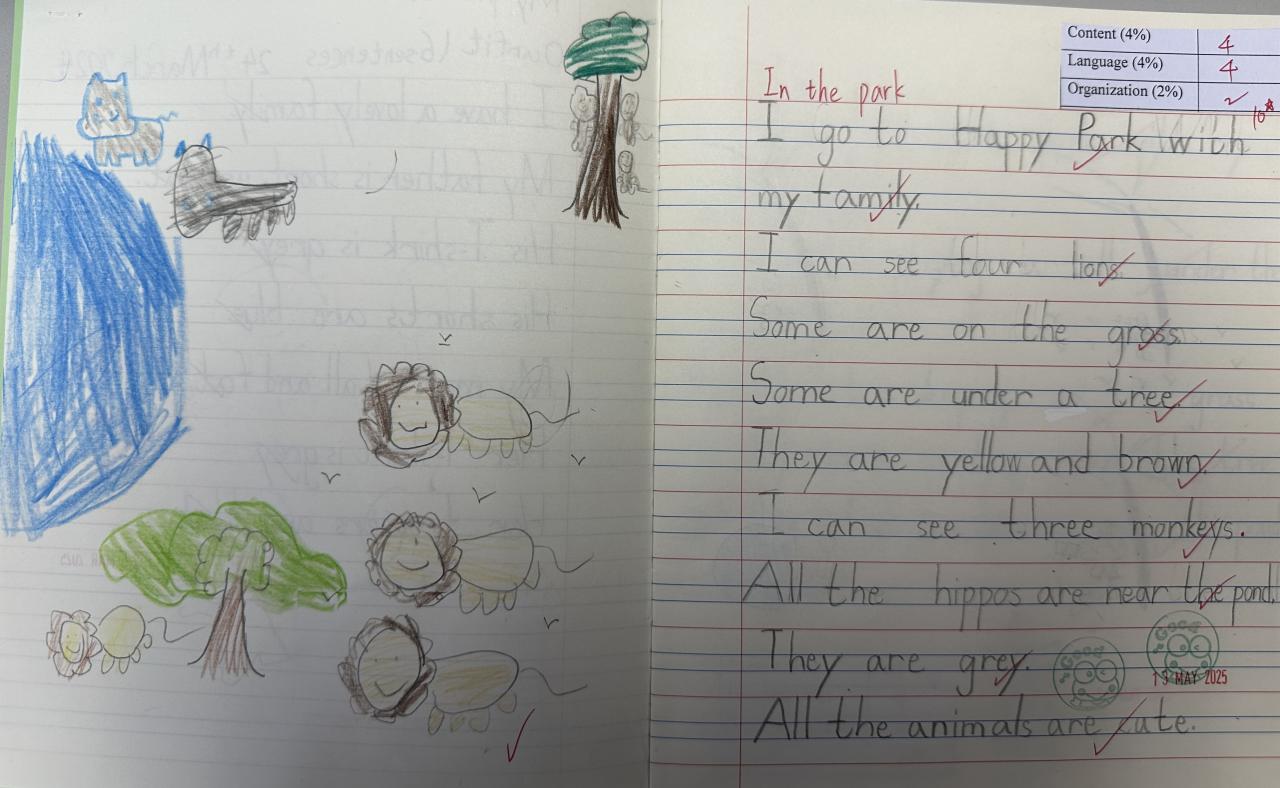 Content (4%) 4
Language (4%) 4
Organization (2%) 2
10
In the park
I go to Happy Park with
my family.
I can see four lions.
Some are on the grass.
Some are under a tree.
They are yellow and brown.
I can see three monkeys.
All the hippos are near the pond.
They are grey.
All the animals are cute.
GOOD
GOOD
13 MAY 2025